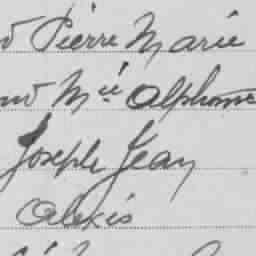 Pierre Marie
Mie Alphonse
Joseph Jean
Alexis